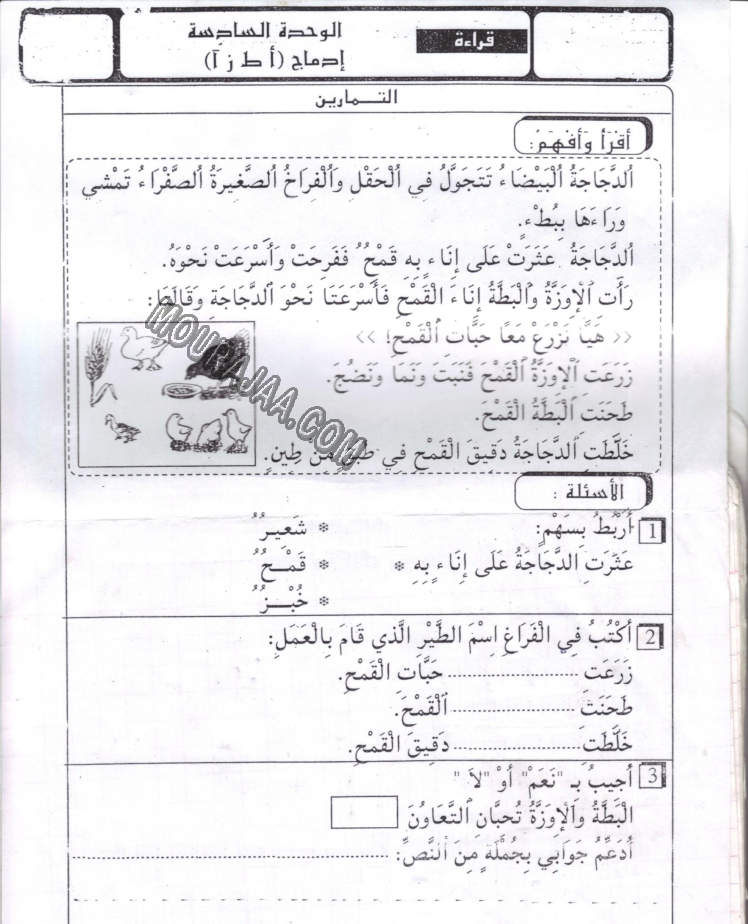 الوحدة السادسة
قراءة
إدماج (أ ط ز آ)
التـــمارين
أَقْرَأُ وَأَفْهَمُ:
اَلدَّجَاجَةُ اُلْبَيْضَاءُ تَتَجَوَّلُ فِي اُلْحَقْلِ وَاُلْفِرَاخُ اُلصَّغِيرَةُ اُلصَّفْرَاءُ تَمْشِي
وَرَاءَهَا بِبُطْءٍ.
اَلدَّجَاجَةُ عَثَرَتْ عَلَى إِنَاءٍ بِهِ قَمْحٌ فَفَرِحَتْ وَأَسْرَعَتْ نَحْوَهُ.
رَأَت اِلْإِوَزَّةُ وَاَلْبَطَّةُ إِنَاءَ الْقَمْحِ فَأَسْرَعَتَا نَحْوَ اَلدَّجَاجَةِ وَقَالَتَا:
<< هَيَّا نَزْرَعْ مَعًا حَبَّاتِ اَلْقَمْحِ! >>
زَرَعَتِ اَلْإِوَزَّةُ اَلْقَمْحَ فَنَبَتَ وَنَمَا وَنَضُجَ.
طَحَنَتِ اَلْبَطَّةُ الْقَمْحَ.
خَلَّطَتِ اَلدَّجَاجَةُ دَقِيقَ الْقَمْحِ فِي طَبَقٍ مِنْ طِينٍ.
MOURAJAA.COM
الأسئلة :
1 أَرْبُطُ بِسَهْمٍ: * شَعِيرٌ
عَثَرَتِ الدَّجَاجَةُ عَلَى إِنَاءٍ بِهِ * * قَمْـــحٌ
* خُبْـــزٌ
2 أَكْتُبُ فِي الْفَرَاغِ اِسْمَ الطَّيْرِ الَّذِي قَامَ بِالْعَمَلِ:
زَرَعَت .................... حَبَّاتِ الْقَمْحِ.
طَحَنَتَ .................... اَلْقَمْحَ.
خَلَّطَتِ .................... دَقِيقَ الْقَمْحِ.
3 أُجِيبُ بـِ "نَعَمْ" أَوْ "لاَ "
الْبَطَّةُ وَاَلْإِوَزَّةُ تُحِبَّانِ اَلتَّعَاوُنَ
أُدَعِّمُ جَوَابِي بِجُمْلَةٍ مِنَ اَلنَّصِّ: ....................